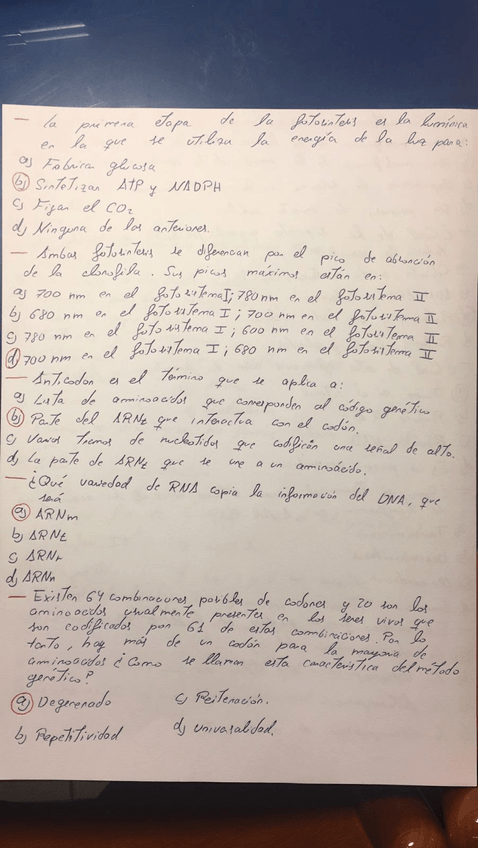 — La primera etapa de la fotosíntesis es la lumínica
en la que se utiliza la energía de la luz para:
a) Fabricar glucosa
b) Sintetizar ATP y NADPH
c) Fijar el CO2
d) Ninguna de las anteriores.
— Ambas fotosíntesis se diferencian por el pico de absorción
de la clorofila. Sus picos máximos están en:
a) 700 nm en el fotosistema I; 780 nm en el fotosistema II
b) 680 nm en el fotosistema I; 700 nm en el fotosistema II
c) 780 nm en el fotosistema I; 600 nm en el fotosistema II
d) 700 nm en el fotosistema I; 680 nm en el fotosistema II
— Anticodon es el término que se aplica a:
a) Lista de aminoácidos que corresponden al código genético
b) Parte del ARNt que interactua con el codón.
c) Varios tramos de nucleotidos que codifican una señal de alto.
d) La parte de ARNt que se une a un aminoácido.
— ¿Qué variedad de RNA copia la información del DNA, que
será
a) ARNm
b) ARNt
c) ARNr
d) ARNn
— Existen 64 combinaciones posibles de codones y 20 son los
aminoacidos usualmente presentes en los seres vivos que
son codificados por 61 de estas combinaciones. Por lo
tanto, hay más de un codón para la mayoría de
aminoacidos ¿Como se llaman esta característica del método
genético?
a) Degenerado c) Reiteración.
b) Repetitividad d) Universalidad.